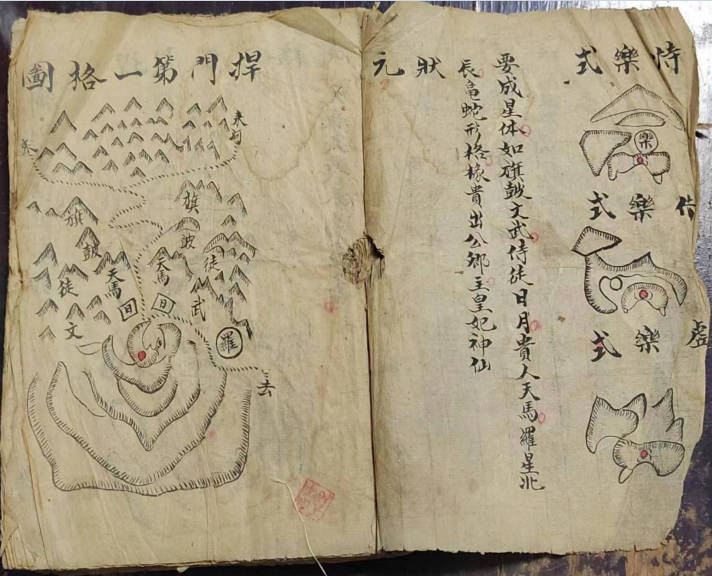 恃樂式
樂
樂式
虛樂式
要成星体如旗鼓文武侍徒日月貴人天馬羅星北
辰亀蛇形格椽貴出公鄉主皇妃神仙
狀元
捍門第一格圖
來
旗
鼓
徒
天馬
武
日
羅
去
來
旗
鼓
天馬
徒
文